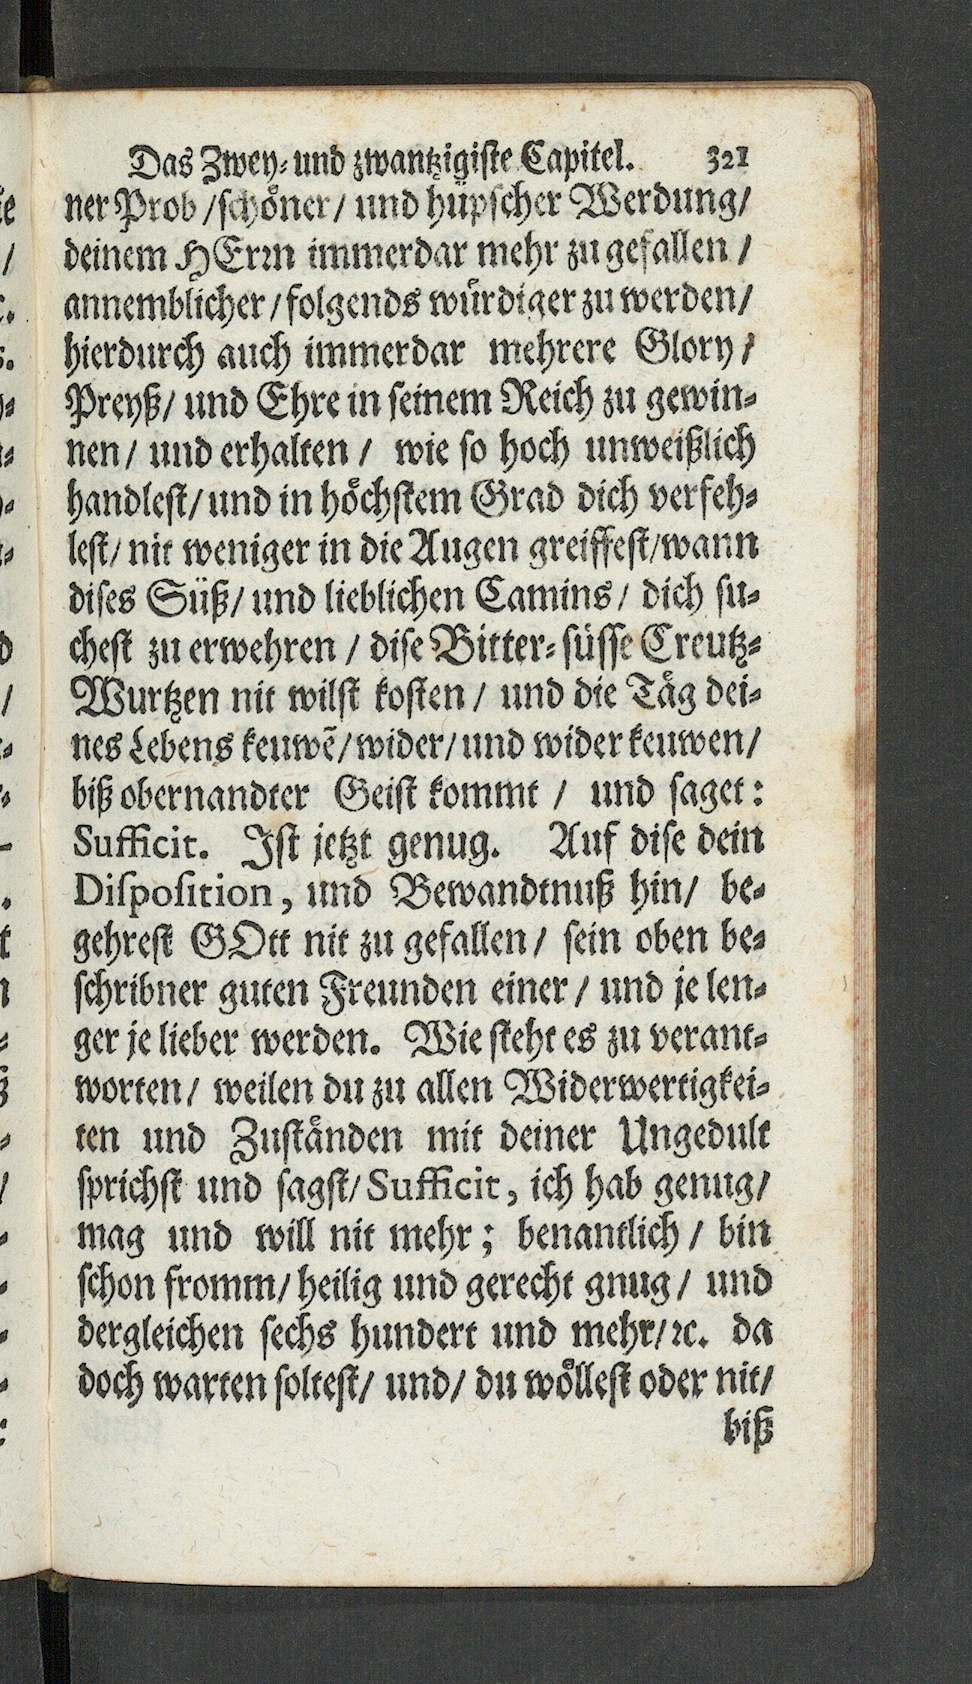 Das Zwey- und zwantzigiste Capitel. 321
ner Prob / schöner / und hüpscher Werdung /
deinem HErrn immerdar mehr zu gefallen /
annemblicher / folgends würdiger zu werden /
hierdurch auch immerdar mehrere Glory /
Preyß / und Ehre in seinem Reich zu gewin-
nen / und erhalten / wie so hoch unweißlich
handlest / und in höchstem Grad dich verfeh-
lest / nit weniger in die Augen greiffest / wann
dises Süß / und lieblichen Camins / dich su-
chest zu erwehren / dise Bitter-süsse Creutz-
Wurtzen nit wilst kosten / und die Täg dei-
nes Lebens keuwẽ / wider / und wider keuwen /
biß obernandter Geist kommt / und saget:
Sufficit. Ist jetzt genug. Auf dise dein
Disposition, und Bewandtnuß hin / be-
gehrest GOtt nit zu gefallen / sein oben be-
schribner guten Freunden einer / und je len-
ger je lieber werden. Wie steht es zu verant-
worten / weilen du zu allen Widerwertigkei-
ten und Zuständen mit deiner Ungedult
sprichst und sagst / Sufficit, ich hab genug /
mag und will nit mehr; benantlich / bin
schon fromm / heilig und gerecht gnug / und
dergleichen sechs hundert und mehr / ꝛc. da
doch warten soltest / und / du wöllest oder nit /
biß